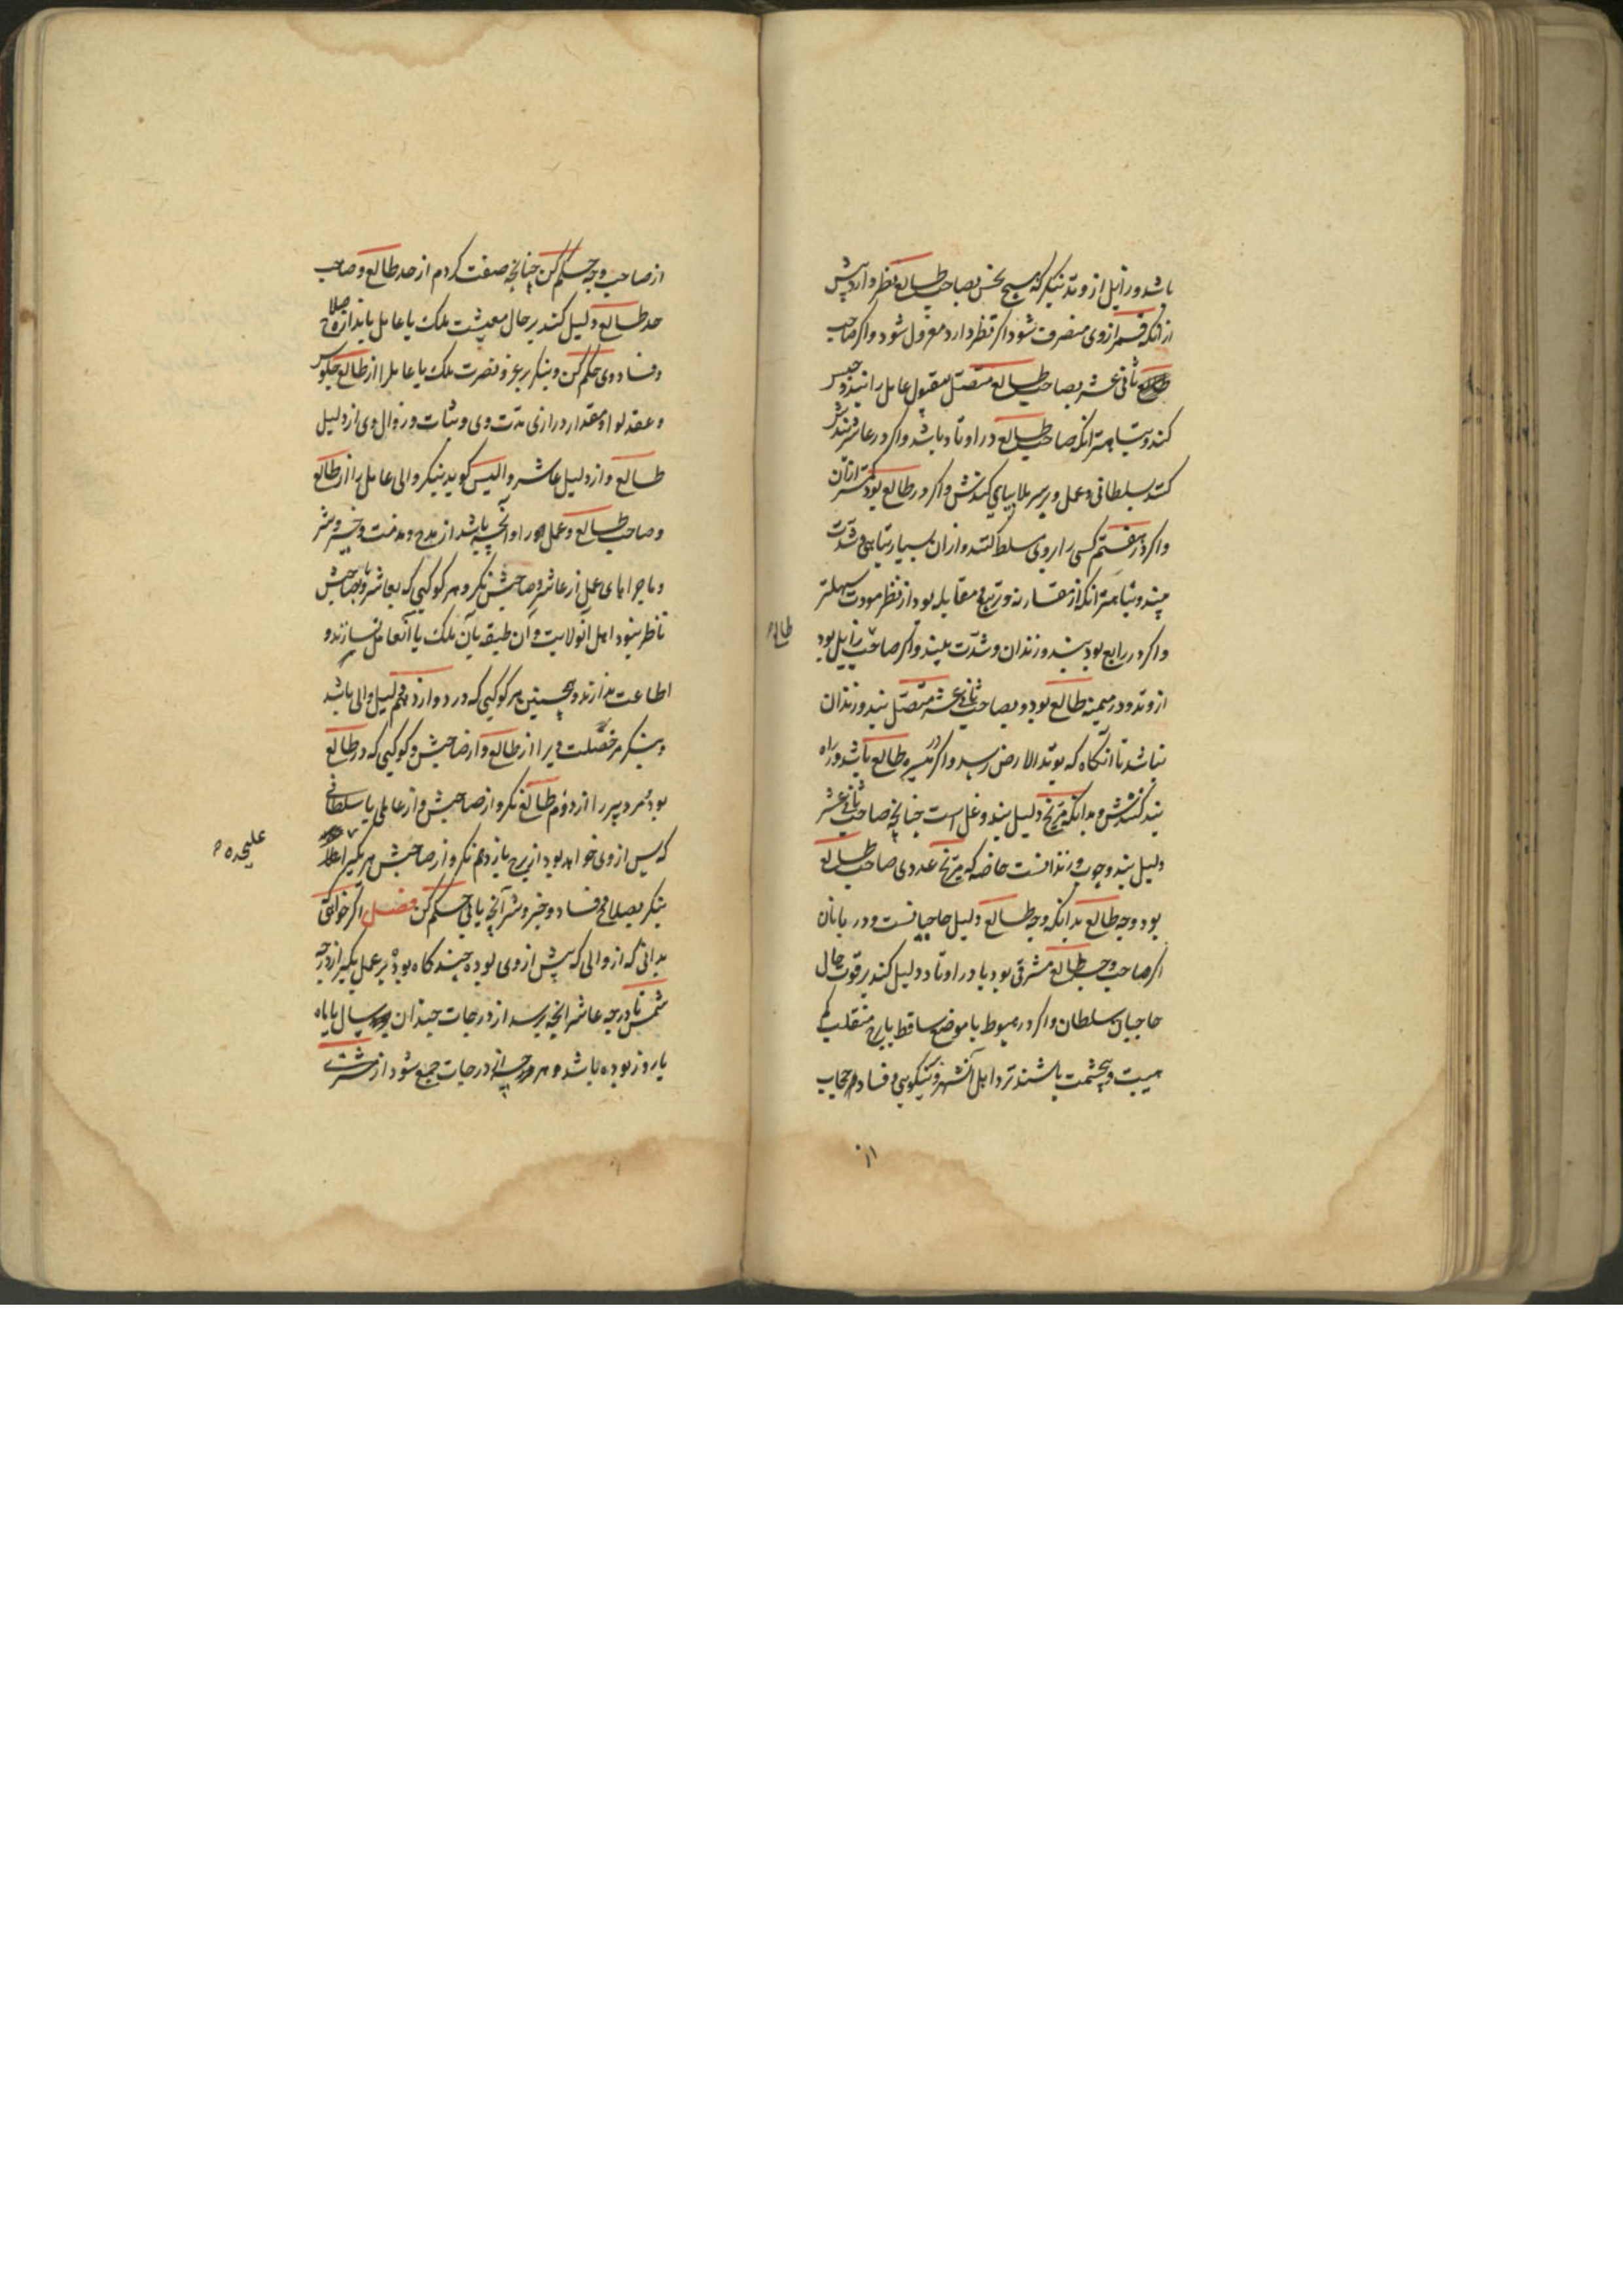 باشد و زایل از وتد بنگر که هیچ نحس بصاحب طالع نظر دارد پیش
از آنکه قمر از وی منصرف شود اگر نظر دارد معزول شود و اگر صاحب
طالع ثانی عشر بصاحب طالع متصل مقبول عامل را بند و حبس
کند و تباهتر آنکه صاحب طالع در اوتاد باشد و اگر در عاشر
کنند سلطانی و عمل و بر سر بلا بپای کنندش و اگر در طالع بود کمتر از آن
و اگر در هفتم کسی را بر وی مسلط کنند و از آن بسیار تباهی و شدت
بیند و تباهتر آنکه از مقارنه و تربیع و مقابله بود و از نظر مودت سهلتر
و اگر در رابع بود بند و زندان و شدت بیند و اگر صاحب زایل بود
طالع
از وتد و در میمنه طالع بود و بصاحب ثانی عشر متصل بند و زندان
نباشد تا آنکاه که بوتد الارض رسد و اگر در میسره طالع باشد در راه
بند کنندش و بدانکه مریخ دلیل بند و غل است چنانچه صاحب ثانی عشر
دلیل بند و چوب و زندانست خاصه که مریخ عدوی صاحب طالع
بود وجه طالع بدانکه وجه طالع دلیل حاجبانست و دربانان
اگر صاحب وجه طالع مشرقی بود یا در اوتاد دلیل کند بر قوت حال
حاجبان سلطان و اگر در هبوط یا موضع ساقط یا برج منقلب
هیبت و بیحشمت باشند نزد اهل آنشهر و نیکویی و فساد حجاب
از
از صاحب وجه حکم کن چنانچه صفت کردم از حد طالع و صاحب
حد طالع دلیل کند بر حال معیشت ملک یا عامل باندازه صلاح
و فساد وی حکم کن و بنگر بر عز و نصرت ملک یا عامل را از طالع جلوس
و عقد لوا و مقدار درازی مدت وی و ثبات و زوال وی از دلیل
طالع و از دلیل عاشر والیس گوید بنگر والی عامل را از طالع
و صاحب طالع و عمل او را و آنچه باشد از مدح و مذمت و خیر و شر
و ماجراهای عمل از عاشر و صاحبش نگر و هر کوکبی که بعاشر و یا بصاحبش
ناظر نبود اهل آنولایت و آن طبقه بآن ملک یا آنعامل نسازند و
اطاعت ندارند و همچنین هر کوکبی که در دوازدهم دلیل والی باشد
و بنگر هر خصلت ویرا از طالع و از صاحبش و کوکبی که در طالع
بود مرد پیر را از دوم طالع نگر و از صاحبش و از عاملی یا سلطانی
که پس از وی خواهد بود از برج یازدهم نگر و از صاحبش هر یکیرا
علیحده
بنگر بصلاح و فساد و خیر و شر آنچه یابی حکم کن فصل اگر خواهی
بدانی که از والی که پیش از وی بوده چند کاه بوده بر عمل بگیر از درجه
شمس تا درجه عاشر آنچه برسد از درجات چندان سال یا ماه
یا روز بوده باشد و هر چه از درجات جمع شود از مشتری